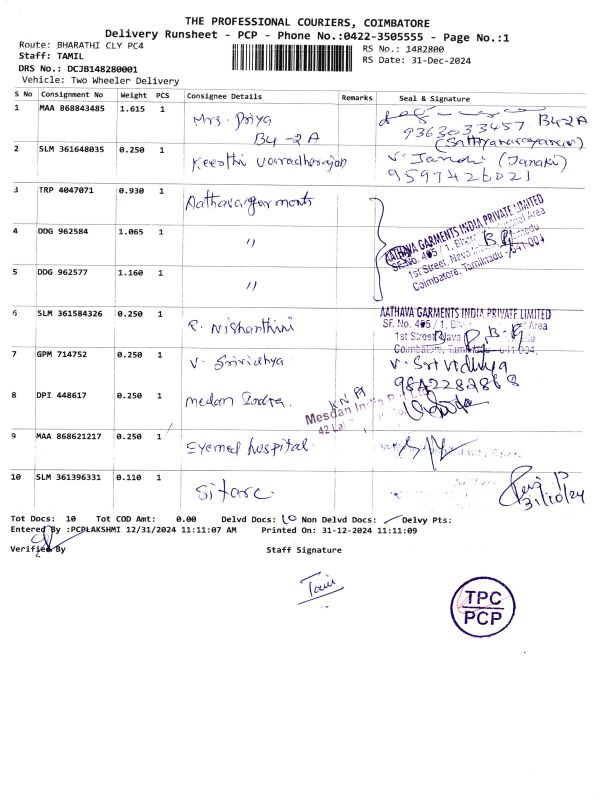 THE PROFESSIONAL COURIERS, COIMBATORE
Delivery Runsheet - PCP - Phone No.:0422-3505555 - Page No.:1
Route: BHARATHI CLY PC4
RS No.: 1482800
Staff: TAMIL
RS Date: 31-Dec-2024
DRS No.: DCJB148280001
Vehicle: Two Wheeler Delivery
S No Consignment No Weight PCS Consignee Details Remarks Seal & Signature
1 MAA 868843485 1.615 1 Mrs. Priya
B4-2A
B4-2A
9363033457
(Sathyanarayanan)
2 SLM 361648035 0.250 1 Keerthi Varadharajan V. Janaki (Janaki)
9597426021
3 TRP 4047071 0.930 1 Aathava garments
4 DDG 962584 1.065 1 "
AATHAVA GARMENTS INDIA PRIVATE LIMITED
SF. No. 405 / 1, Area
1st Street, Nava
Coimbatore, Tamilnadu - 641 004
5 DDG 962577 1.160 1 "
6 SLM 361584326 0.250 1 R. Nishanthini
AATHAVA GARMENTS INDIA PRIVATE LIMITED
SF. No. 405 / 1, Area
1st Street, Nava
Coimbatore, Tamilnadu - 641 004.
7 GPM 714752 0.250 1 V. Srividhya V. Srividhya
9842282868
8 DPI 448617 0.250 1 Medan India.
Mesdan India
42 Lal
9 MAA 868621217 0.250 1 Eyemed hospital
10 SLM 361396331 0.110 1 Sitarc
31/10/24
Tot Docs: 10 Tot COD Amt: 0.00 Delvd Docs: 10 Non Delvd Docs: Delvy Pts:
Entered By :PCPLAKSHMI 12/31/2024 11:11:07 AM Printed On: 31-12-2024 11:11:09
Verified By Staff Signature
TPC
PCP